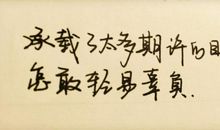 承载了太多期许的目
怎敢轻易辜负.